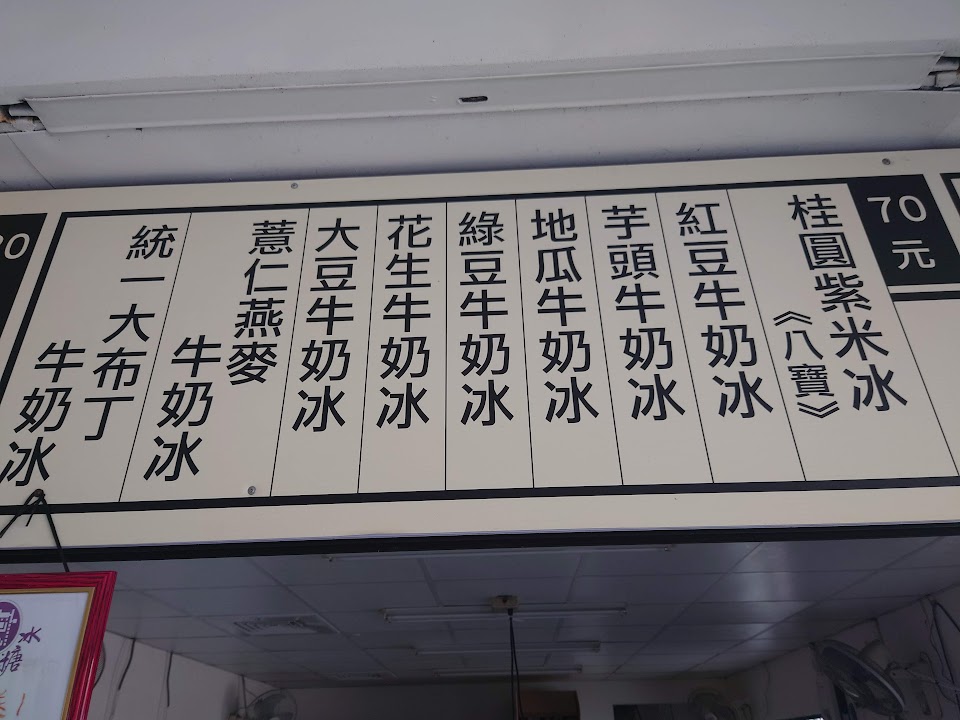 70元
桂圓紫米冰
《八寶》
紅豆牛奶冰
芋頭牛奶冰
地瓜牛奶冰
綠豆牛奶冰
花生牛奶冰
大豆牛奶冰
薏仁燕麥
牛奶冰
統一大布丁
牛奶冰
糖冰